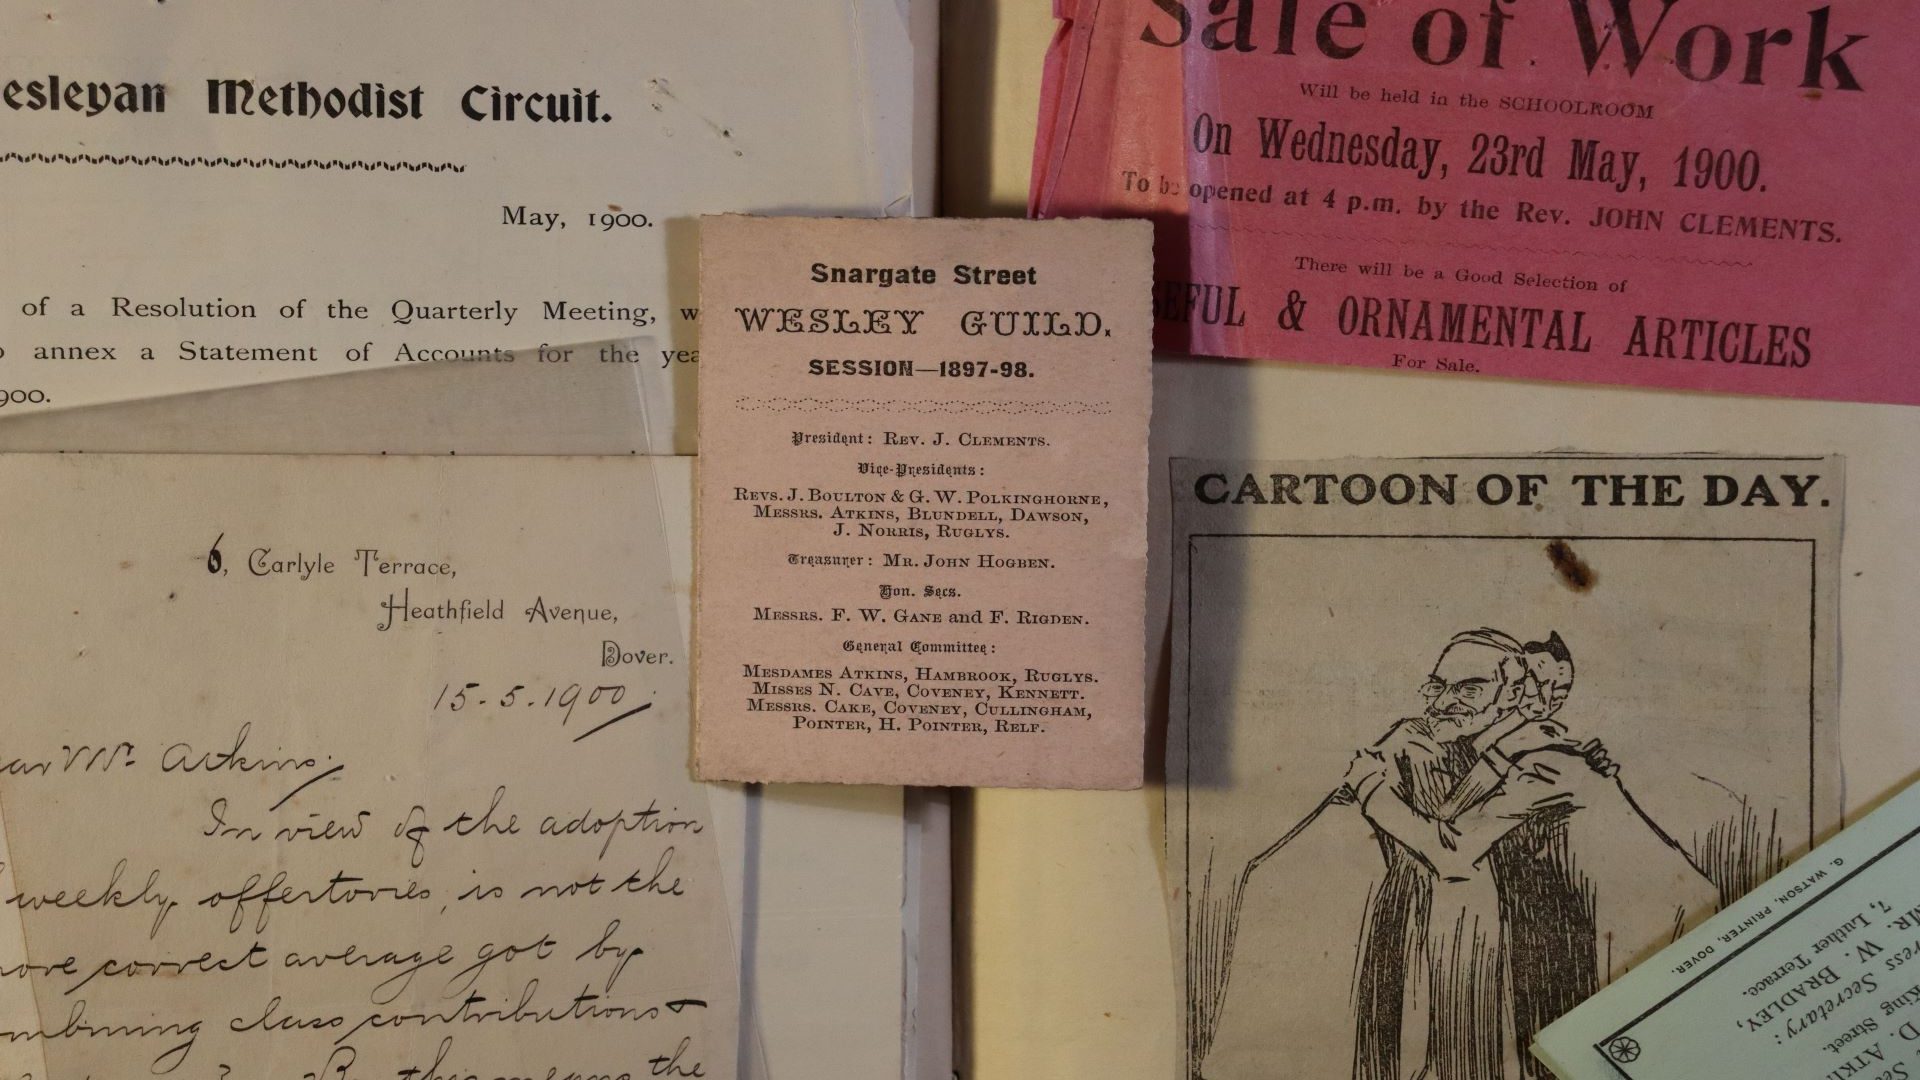 esleyan Methodist Circuit.
May, 1900.
of a Resolution of the Quarterly Meeting, w
annex a Statement of Accounts for the yea
900.
6, Carlyle Terrace,
Heathfield Avenue,
Dover.
15.5.1900.
ear Mr. Atkins.
In view of the adoption
weekly offertories, is not the
more correct average got by
ombining class contributions &
the
Snargate Street
WESLEY GUILD.
SESSION—1897-98.
President: REV. J. CLEMENTS.
Vice-Presidents:
REVS. J. BOULTON & G. W. POLKINGHORNE,
MESSRS. ATKINS, BLUNDELL, DAWSON,
J. NORRIS, RUGLYS.
Treasurer: MR. JOHN HOGBEN.
Hon. Secs.
MESSRS. F. W. GANE and F. RIGDEN.
General Committee:
MESDAMES ATKINS, HAMBROOK, RUGLYS.
MISSES N. CAVE, COVENEY, KENNETT.
MESSRS. CAKE, COVENEY, CULLINGHAM,
POINTER, H. POINTER, RELF.
Sale of Work
Will be held in the SCHOOLROOM
On Wednesday, 23rd May, 1900.
To be opened at 4 p.m. by the Rev. JOHN CLEMENTS.
There will be a Good Selection of
SEFUL & ORNAMENTAL ARTICLES
For Sale.
CARTOON OF THE DAY.
D. ATKI
king Street.
ress Secretary:
MR. W. BRADLEY,
7, Luther Terrace.
G. WATSON, PRINTER, DOVER.